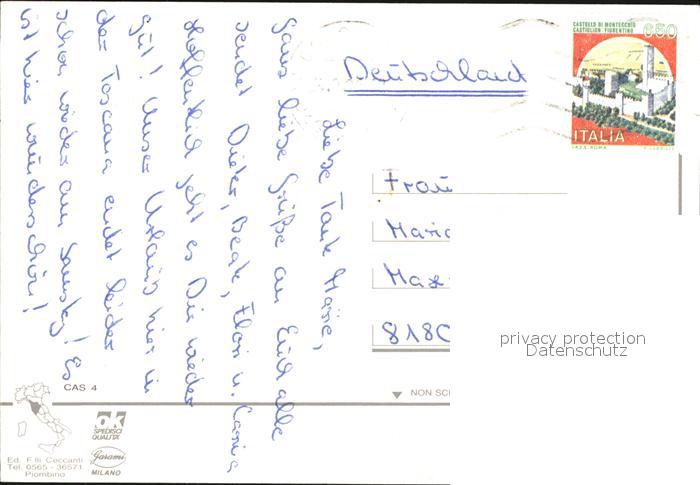 Liebe Tante Marie,
Ganz liebe Grüße an Euch alle
sendet Dieter, Beate, Flori u.
Hoffentlich geht es Dir wieder
gut! Unser Urlaub hier in
der Toscana endet leider
schon wieder am Samstag! Es
ist hier wunderschön!
Deutschland
CASTELLO DI MONTECCHIO
CASTIGLION FIORENTINO
650
ITALIA
I.P.Z.S. ROMA
Frau
Maria
Max
8180
privacy protection
Datenschutz
NON SC
CAS 4
ok
SPEDISCI
QUALITA'
Garami
MILANO
Ed. F.lli Ceccanti
Tel. 0565 - 36571
Piombino